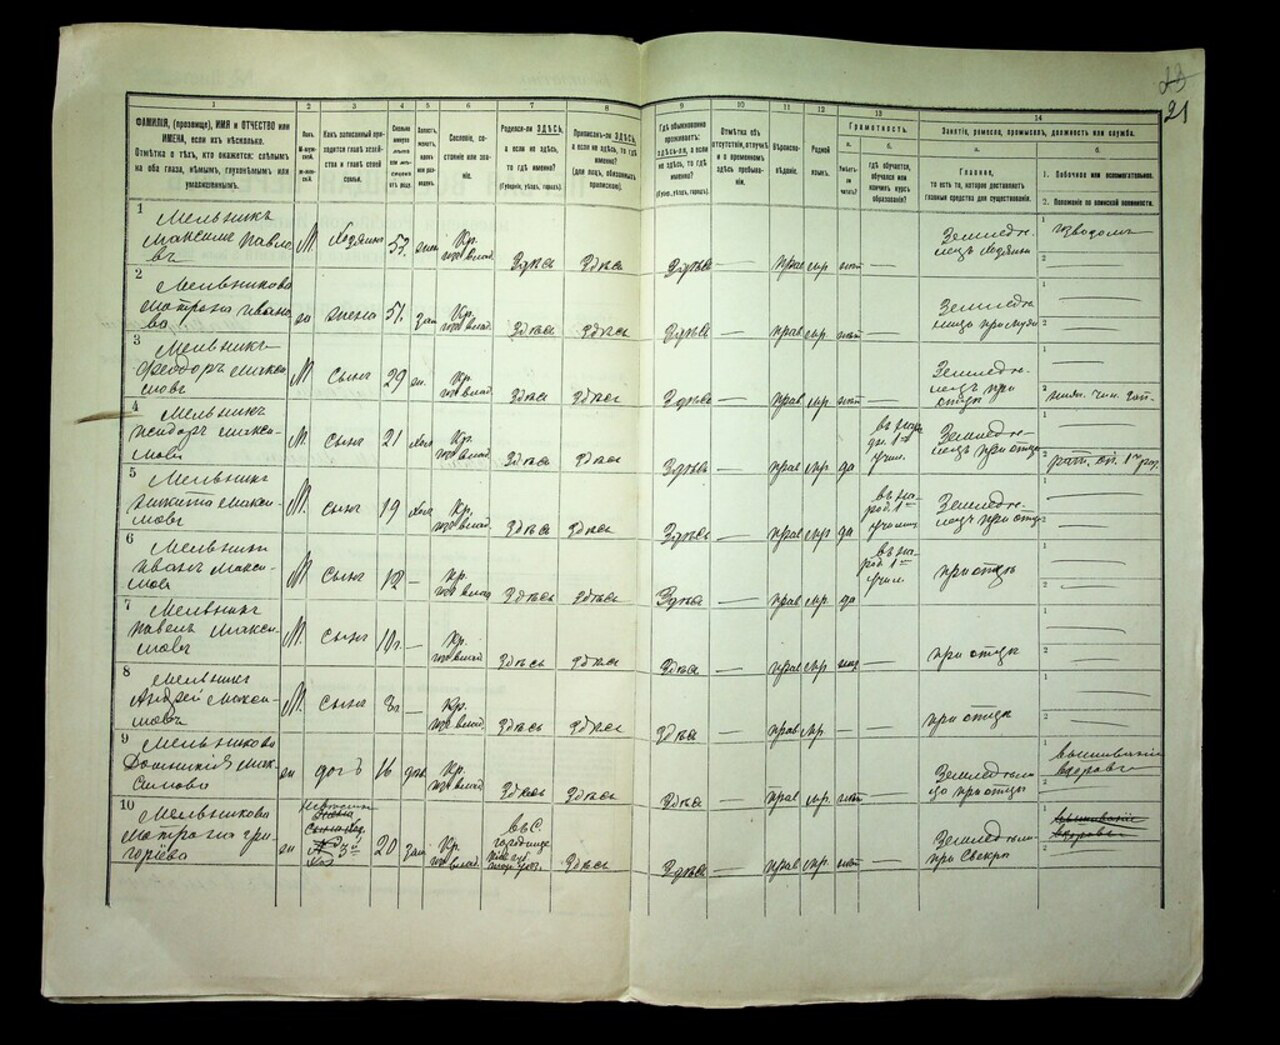 21
1
2
3
4
5
6
7
8
9
10
11
12
13
14
ФАМИЛІЯ, (прозвище), ИМЯ и ОТЧЕСТВО или
ИМЕНА, если ихъ нѣсколько.
Отмѣтка о тѣхъ, кто окажется: слѣпымъ
на оба глаза, нѣмымъ, глухонѣмымъ или
умалишеннымъ.
Полъ.
М-муж-
ской.
Ж-жен-
ской.
Какъ записанный при-
ходится главѣ хозяй-
ства и главѣ своей
семьи.
Сколько
минуло
лѣтъ или мѣ-
сяцевъ
отъ роду.
Холостъ,
женатъ,
вдовъ
или раз-
веденъ.
Сословіе, со-
стояніе или зва-
ніе.
Родился-ли ЗДѢСЬ,
а если не здѣсь,
то гдѣ именно?
(Губернія, уѣздъ, городъ).
Приписанъ-ли ЗДѢСЬ,
а если не здѣсь, то гдѣ
именно?
(для лицъ, обязанныхъ
припискою).
Гдѣ обыкновенно
проживаетъ:
здѣсь-ли, а если
не здѣсь, то гдѣ
именно?
(Губер., уѣздъ, городъ).
Отмѣтка объ
отсутствіи, отлучкѣ
и о временномъ
здѣсь пребыва-
ніи.
Вѣроиспо-
вѣданіе.
Родной
языкъ.
Грамотность.
а.
Умѣетъ-
ли
читать?
б.
гдѣ обучается,
обучался или
кончилъ курсъ
образованія?
Занятіе, ремесло, промыселъ, должность или служба.
а.
Главное,
то есть то, которое доставляетъ
главныя средства для существованія.
б.
1. Побочное или вспомогательное.
2. Положеніе по воинской повинности.
1
Мельникъ
Максимъ Павло-
въ
М
Хозяинъ
53
жен
Кр.
изъ влад.
Здѣсь
Здѣсь
Здѣсь
—
прав
мр
нѣт
—
Земледѣ-
лецъ хозяинъ
1
извозомъ
2
2
Мельникова
Матрона Ивано-
ва
ж
жена
51
зам
Кр.
изъ влад.
Здѣсь
Здѣсь
Здѣсь
—
прав
мр
нѣт
—
Земледѣ-
лица при мужѣ
1
2
3
Мельникъ
Феодоръ Макси-
мовъ
М
Сынъ
29
ж.
Кр.
изъ влад.
Здѣсь
Здѣсь
Здѣсь
—
прав
мр
нѣт
—
Земледѣ-
лецъ при
отцѣ
1
2 нижн. чин. зап.
4
Мельникъ
Исидоръ Макси-
мовъ
М
Сынъ
21
хол
Кр.
изъ влад.
Здѣсь
Здѣсь
Здѣсь
—
прав
мр
да
въ на
Земледѣ-
лецъ при отцѣ
1
2 рат. оп. 1го раз.
5
Мельникъ
Никита Макси-
мовъ
М
сынъ
19
хол
Кр.
изъ влад.
Здѣсь
Здѣсь
Здѣсь
—
прав
мр
да
въ на-
род.
Земледѣ-
лецъ при отцѣ
1
2
6
Мельникъ
Иванъ Макси-
мовъ
М
Сынъ
12
—
Кр.
изъ влад
Здѣсь
Здѣсь
Здѣсь
—
прав
мр.
да
въ на-
род.
учил.
при отцѣ
1
2
7
Мельникъ
Павелъ Макси-
мовъ
М.
Сынъ
10 г.
—
Кр.
изъ влад
Здѣсь
Здѣсь
Здѣсь
—
прав
мр
нѣт
—
при отцѣ
1
2
8
Мельникъ
Андрей Макси-
мовъ
М.
Сынъ
—
Кр.
изъ влад.
Здѣсь
Здѣсь
Здѣсь
—
прав
мр
—
при отцѣ
1
2
9
Мельникова
Домникія Мак-
симова
ж
дочь
16
дѣв.
Кр.
изъ влад
Здѣсь
Здѣсь
Здѣсь
—
прав
мр.
нѣт
—
при отцѣ
1
вышиваніе
2
10
Мельникова
Матрона Гри-
горіева
ж
20
зам
Кр.
изъ влад.
въ с.
Здѣсь
Здѣсь
—
прав
мр.
нѣт
—
при Свекрѣ
1
вышиваніе
2